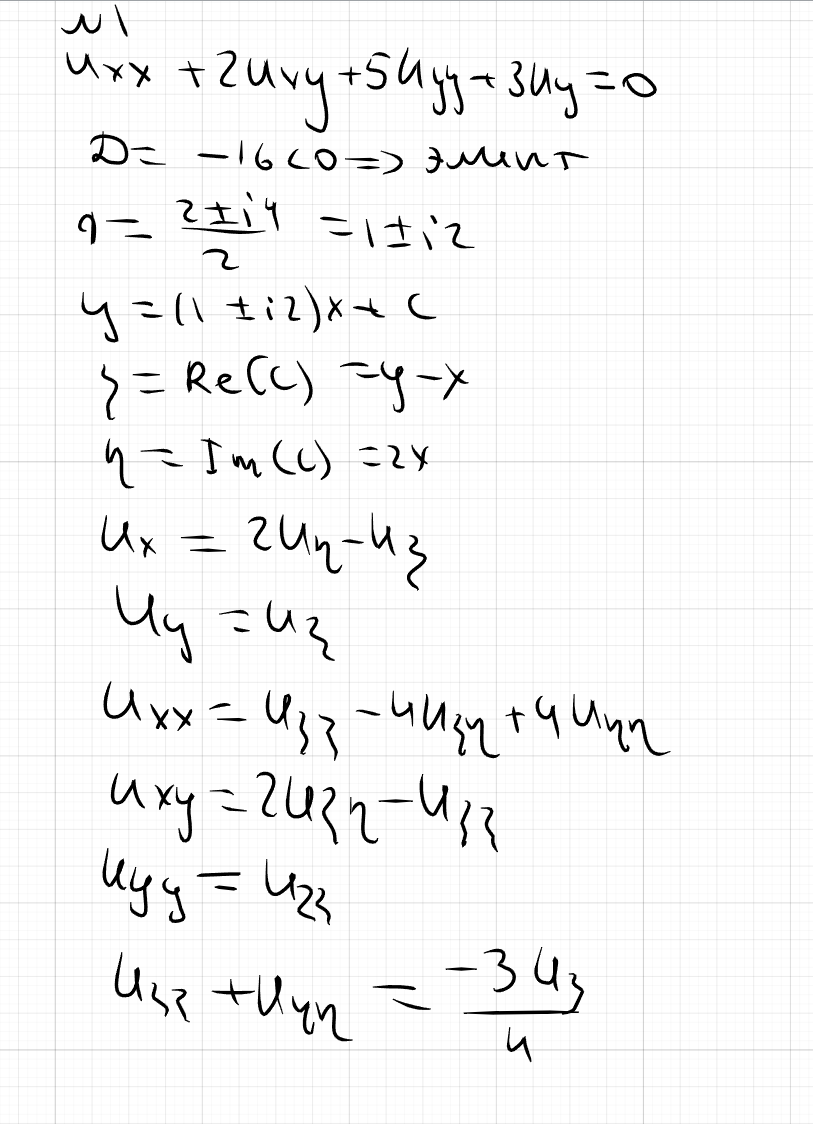 N1
Uxx + 2Uxy + 5Uyy + 3Uy = 0
D = -16 < 0 => эллипт
λ = (2 ± i4)/2 = 1 ± i2
y = (1 ± i2)x + C
ξ = Re(C) = y - x
η = Im(C) = 2x
Ux = 2Uη - Uξ
Uy = Uξ
Uxx = Uξξ - 4Uξη + 4Uηη
Uxy = 2Uξη - Uξξ
Uyy = Uξξ
Uξξ + Uηη = (-3Uξ)/4